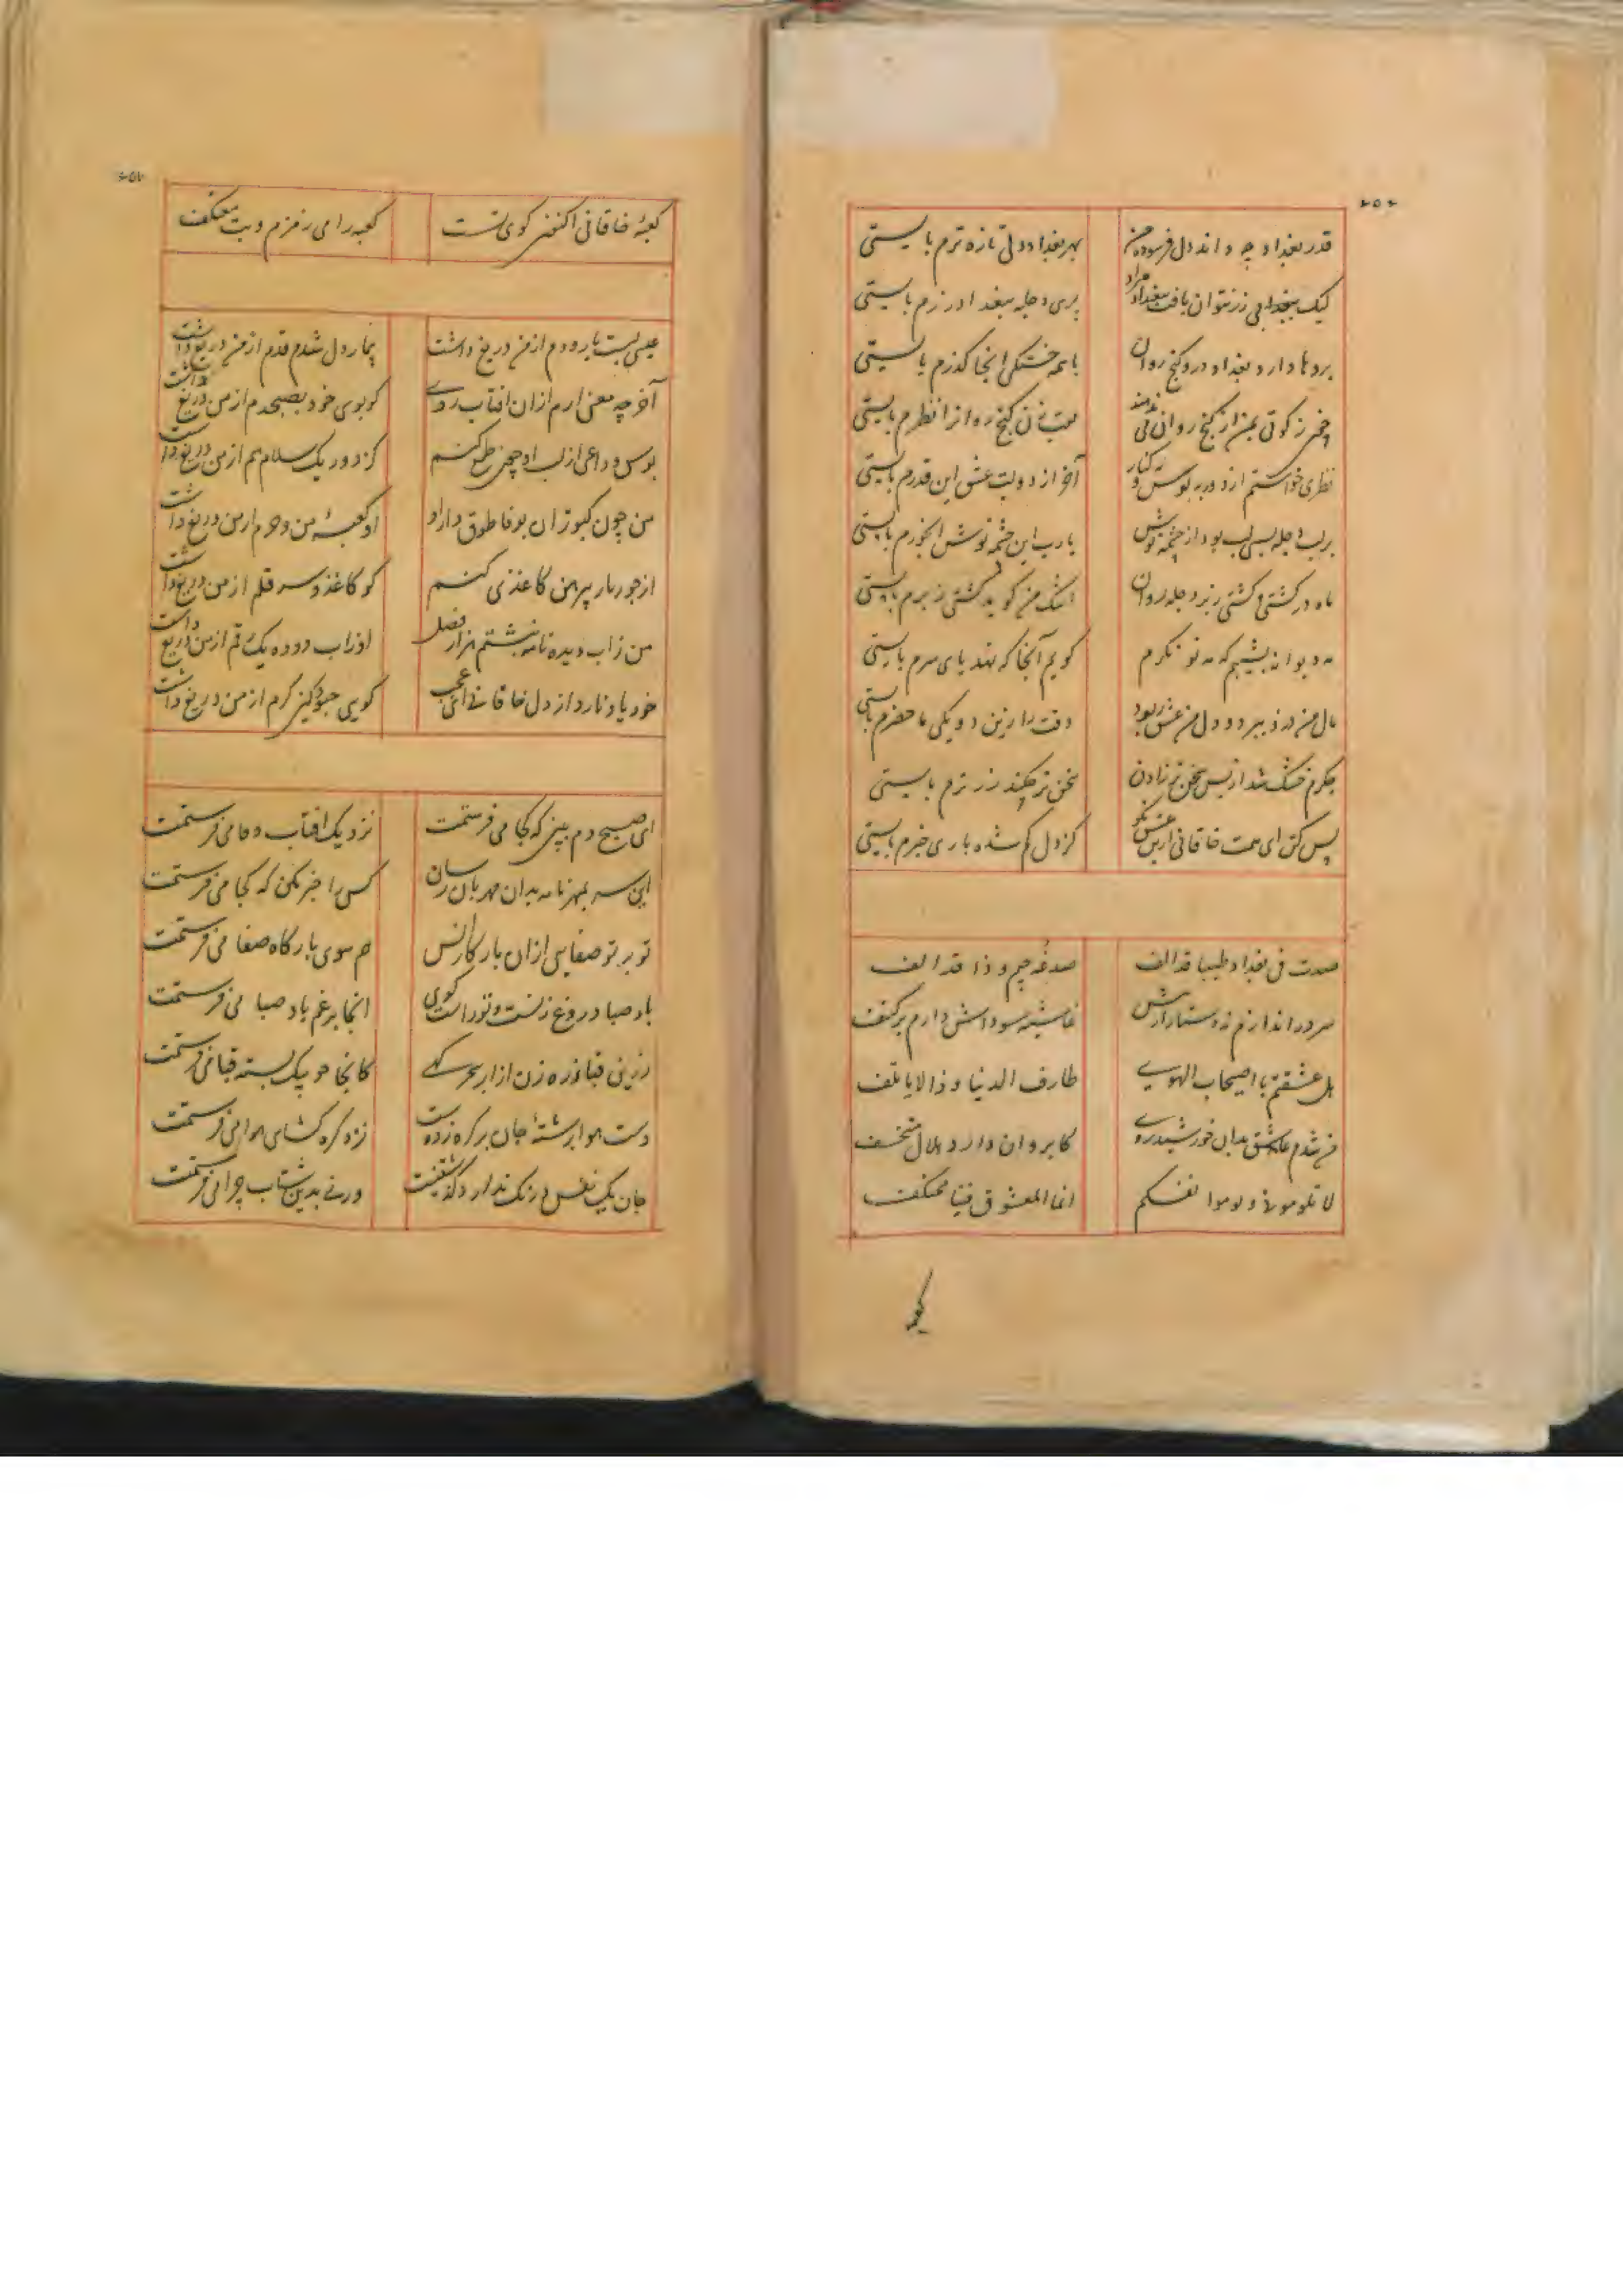 ۶۵۶
قدر بغداد چه داند دل فرسوده من
بهر بغداد دلی تازه ترم بایستی
لیک بی زر نتوان یافت ببغداد مراد
پری دجله ببغداد زرم بایستی
بروها دارد بغداد در و گنج روان
با همه خستگی آنجا گذرم بایستی
نظری خواستم از دور نه بوس و نه کنار
آخر از دولت عشق این قدرم بایستی
بر لب دجله بسی لب بود از چشمه نوش
یارب این چشمه نوش آبخورم بایستی
ماه در کشتی و کشتی ز بر دجله روان
اشک من گوید کشتی ز برم بایستی
گویم آنجا که نهد پای سرم بایستی
مال من دزد ببرد و دل من عشق ربود
وقت را زین دو یکی ماحضرم بایستی
جگرم خشک شد از بس سخن تر زادن
سخن تر چکند زر ترم بایستی
پس کن ای همت خاقانی ازین عشق مگو
کز دل گم شده باری خبرم بایستی
صدت فی بغداد ظبیا قد الف
صدغه جیم و ذا قد الف
سر دراندازم نه دستار ارش
غاشیه سوداش دارم بر کتف
هل عشقتم یا اصیحاب الهوی
طارف الدنیا و ذا لا یاتلف
من شدم عاشق بدان خورشید روی
کابروان دارد هلال منخسف
لا تلومونی و لوموا نفسکم
انما المعشوق فینا معتکف
کعبه
۶۵۷
کعبه خاقانی اکنون کوی تست
کعبه را می زمزم و بت معتکف
عیسی لبست یار و دم از من دریغ داشت
بیمار دل شدم قدم از من دریغ داشت
آخر چه معنی ارم ازان افتاب روی
کو بوی خود بصبحدم از من دریغ داشت
بوس وداعی از لب او چون طلب کنم
کز دور یک سلام هم از من دریغ داشت
من چون کبوتران بوفا طوق دار او
او کعبه من و حرم از من دریغ داشت
از جور یار پیرهن کاغذی کنم
کو کاغذ و سر قلم از من دریغ داشت
من ز اب دیده نامه نوشتم هزار فصل
او ز اب دوده یک رقم از من دریغ داشت
خود یاد نارد از دل خاقانی ای عجب
گویی چه بود کین کرم از من دریغ داشت
ای صبح دم ببین که کجا می فرستمت
نزدیک افتاب وفا می فرستمت
این سر بمهر نامه بدان مهربان رسان
کس را خبر مکن که کجا می فرستمت
تو پرتو صفایی ازان بارگاه انس
هم سوی بارگاه صفا می فرستمت
باد صبا دروغ زنست و تو راست گوی
انجا برغم باد صبا می فرستمت
زرین قبا زره زن از ابر سحر گهی
کانجا چو پیک بسته قبا می فرستمت
دست هوا برشته جان بر گره زده ست
نزد گره گشای هوا می فرستمت
جان یک نفس درنگ ندارد گذشتنیست
ورنی بدین شتاب چرا می فرستمت